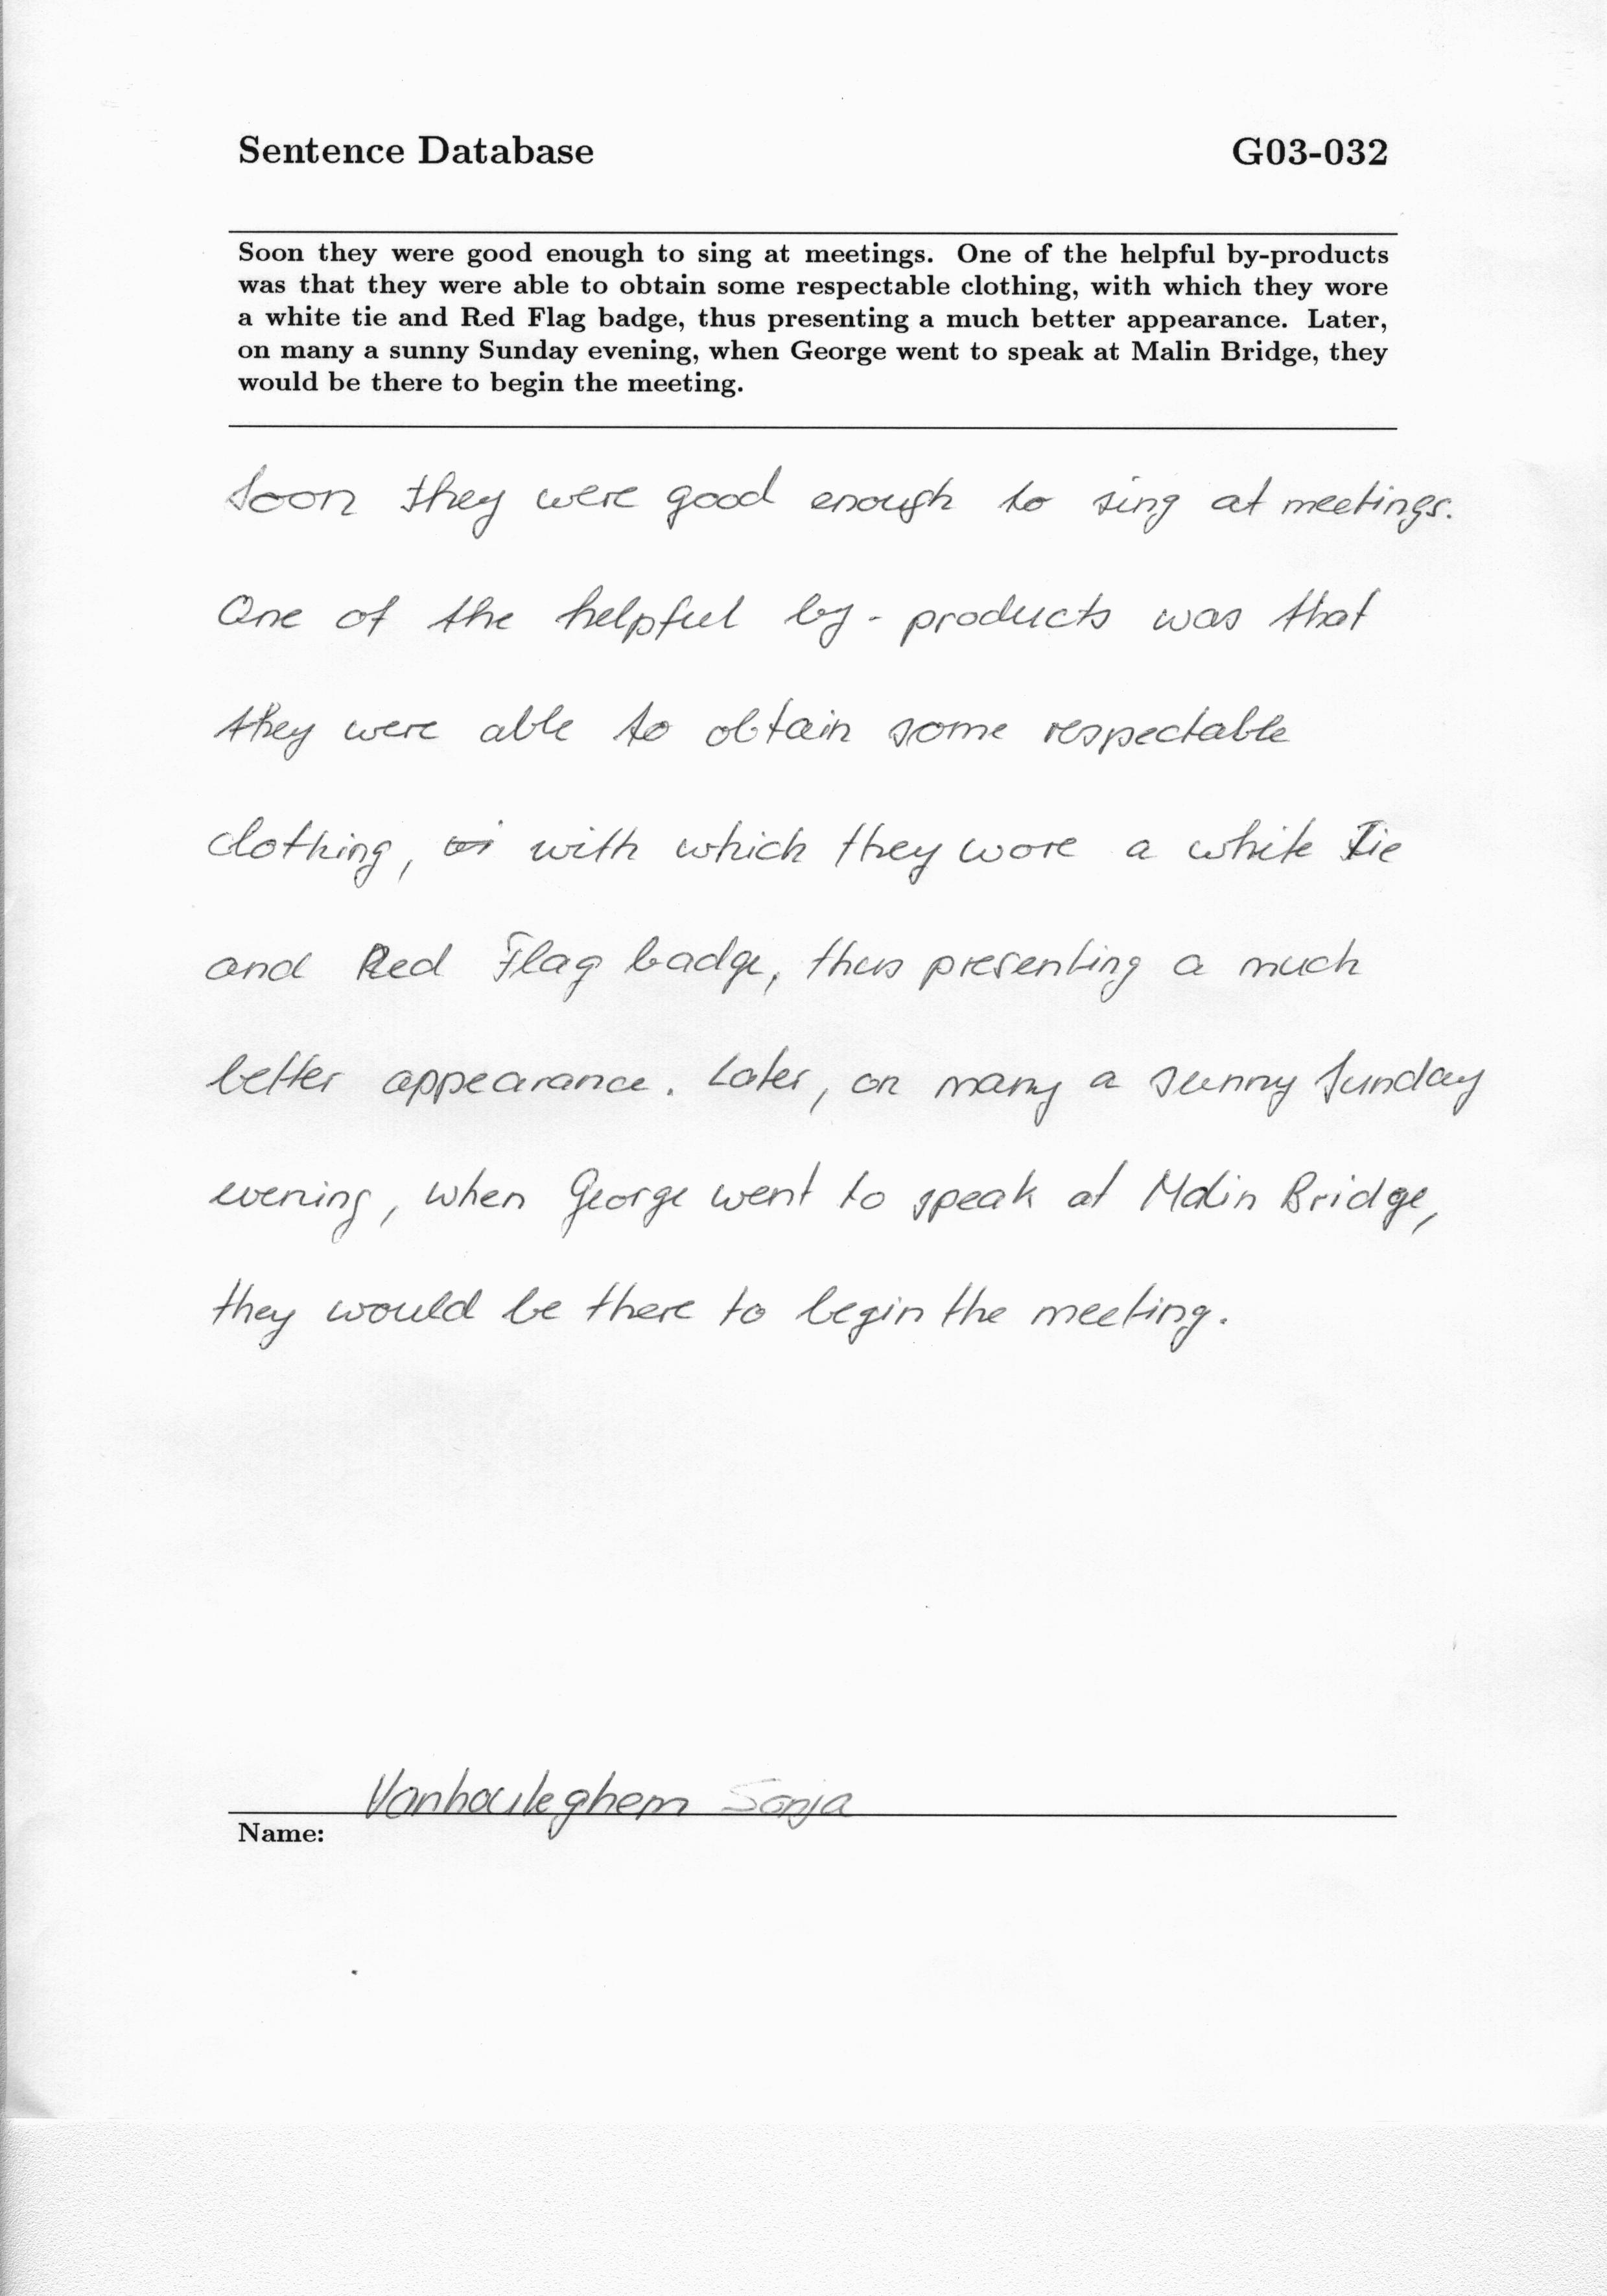 Sentence Database G03-032
Soon they were good enough to sing at meetings. One of the helpful by-products
was that they were able to obtain some respectable clothing, with which they wore
a white tie and Red Flag badge, thus presenting a much better appearance. Later,
on many a sunny Sunday evening, when George went to speak at Malin Bridge, they
would be there to begin the meeting.
Soon they were good enough to sing at meetings.
One of the helpful by-products was that
they were able to obtain some respectable
clothing, with which they wore a white Tie
and Red Flag badge, thus presenting a much
better appearance. Later, on many a sunny Sunday
evening, when George went to speak at Malin Bridge,
they would be there to begin the meeting.
Sonja
Name: